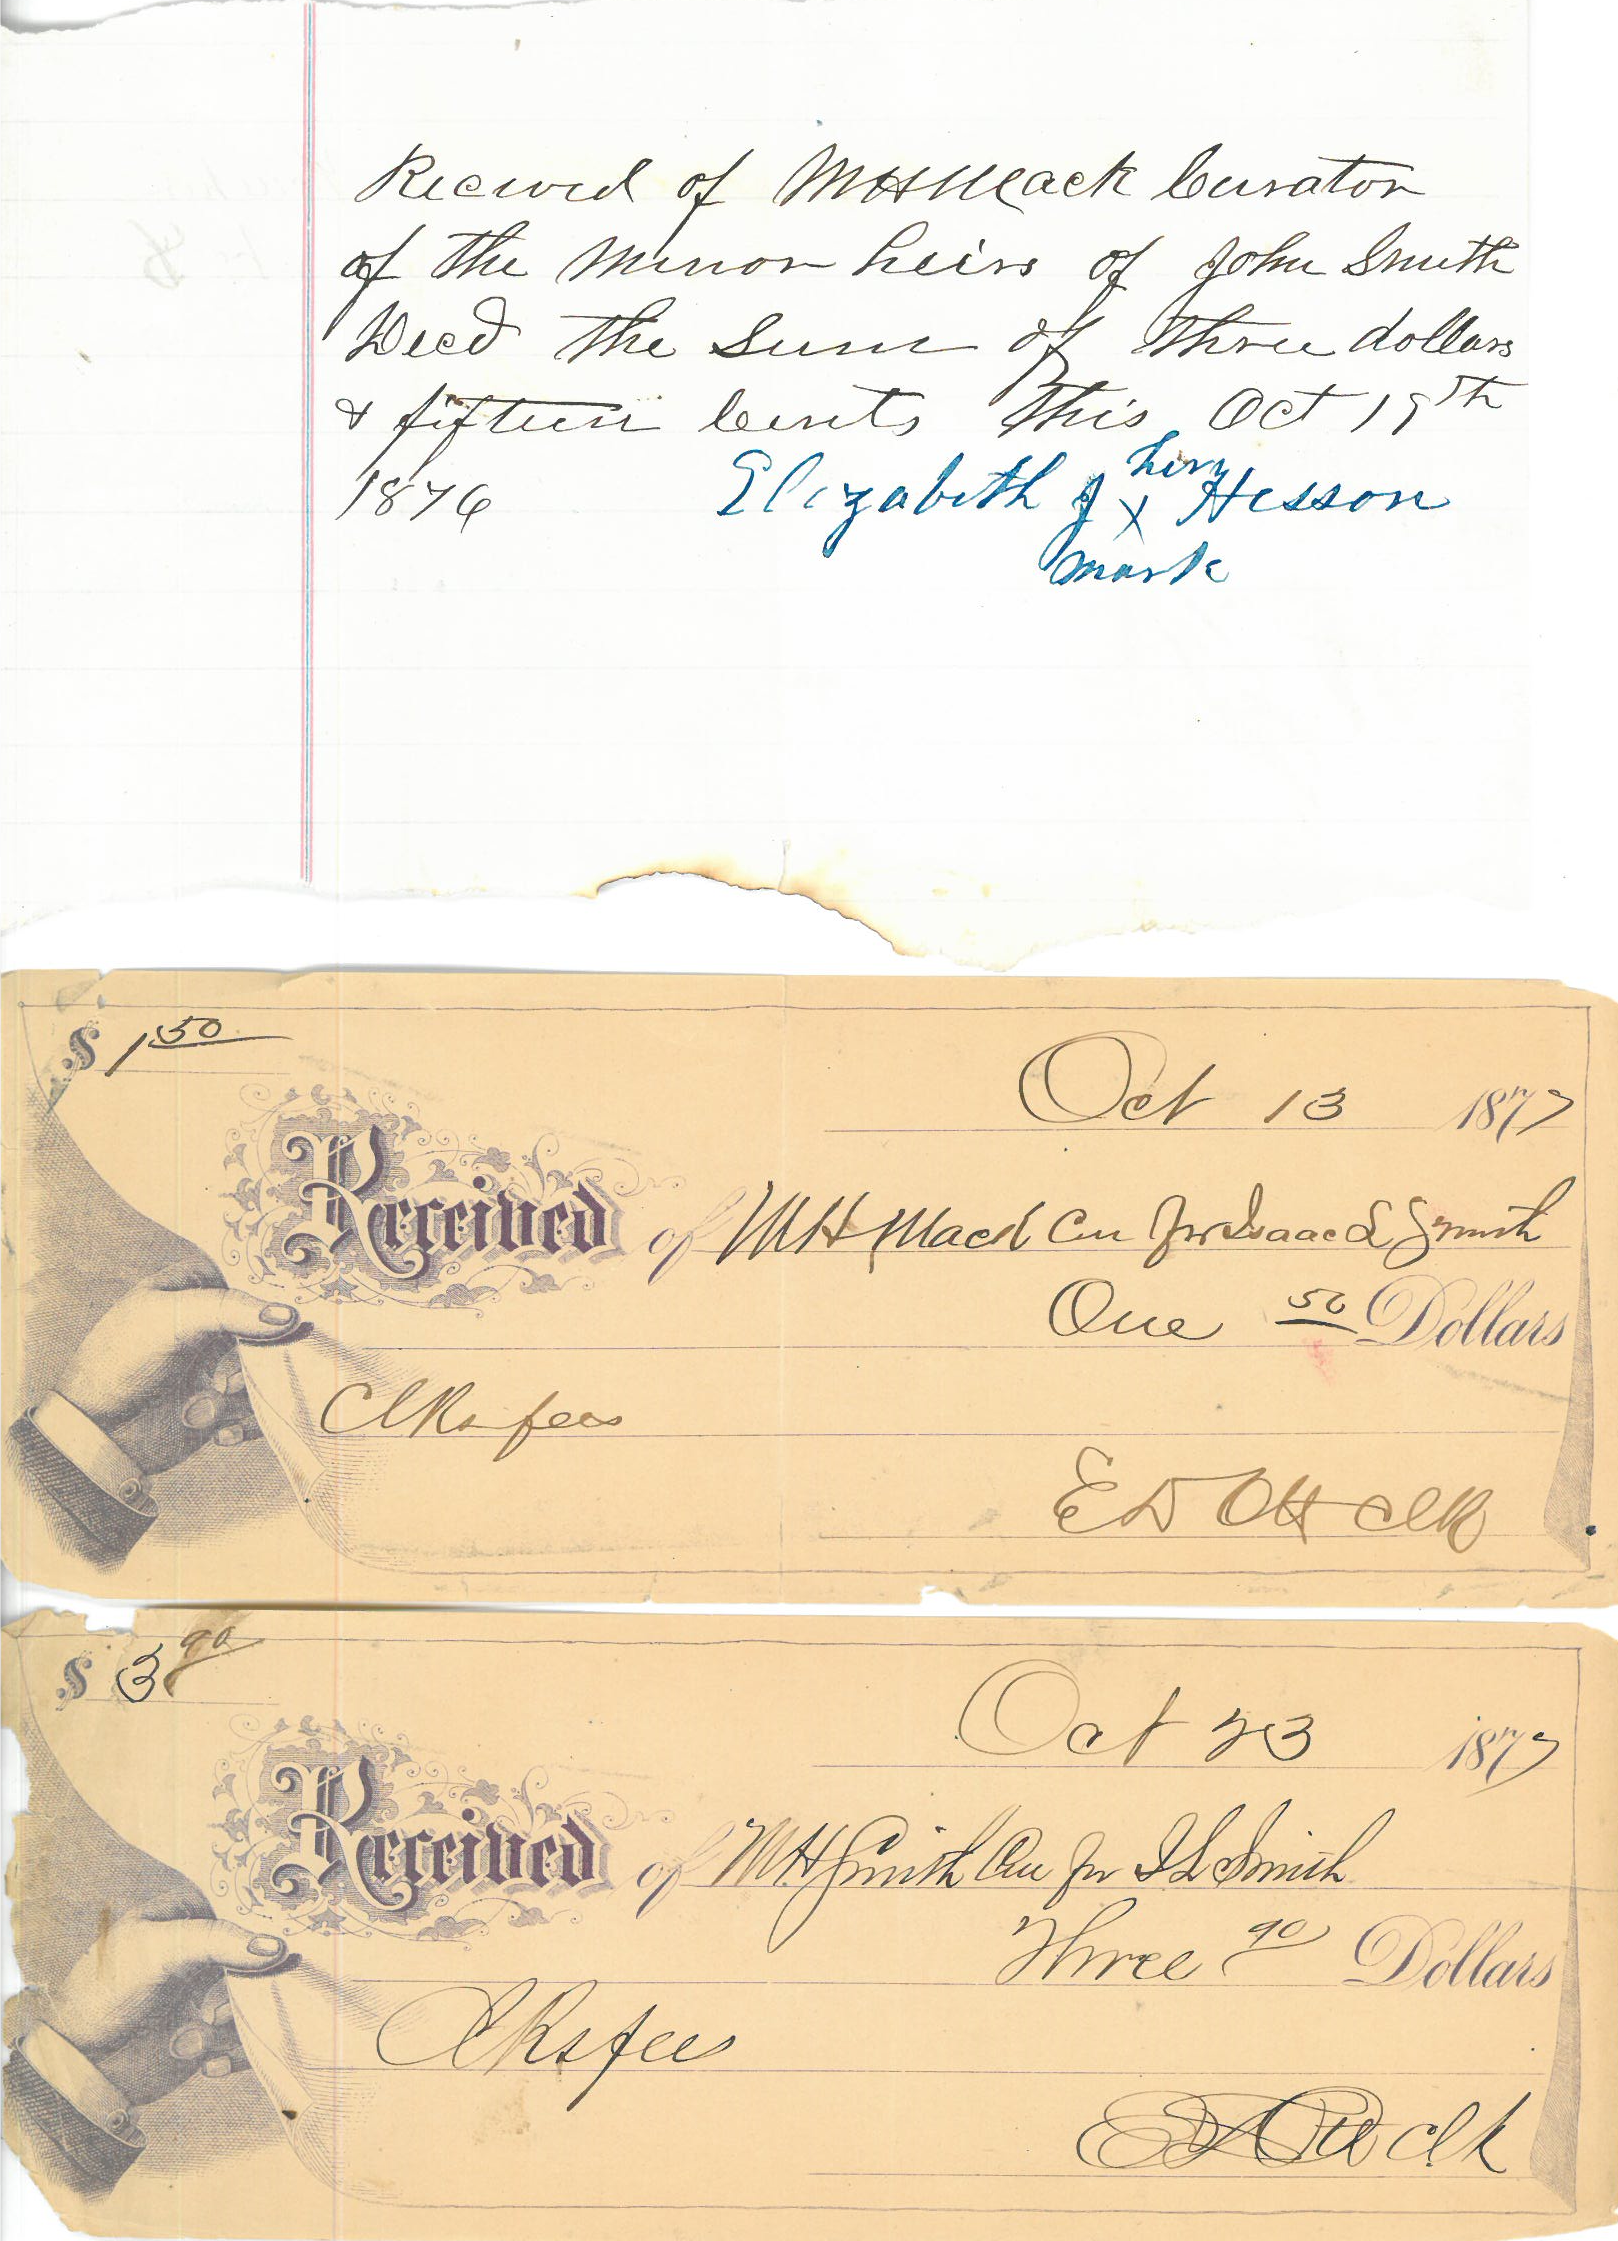 Recievd of M H Mack Curator
of the Minor heirs of John Smith
Decd the Sum of three dollars
& fifteen Cents this Oct 19th
1876 Elizabeth J X Hesson
her
mark
$ 1 50
Oct 13 1877
Received of M H Mack Cu for Isaac L Smith
One 50 Dollars
Clks fees
E D Ott Clk
$ 3 90
Oct 23 1877
Received of M H Smith Cu for I L Smith
Three 90 Dollars
Clks fees
Clk